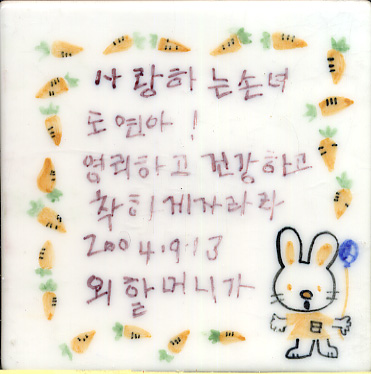 사랑하는손녀
도연아!
영리하고 건강하고
착하게자라라
2004.9.13
외할머니가